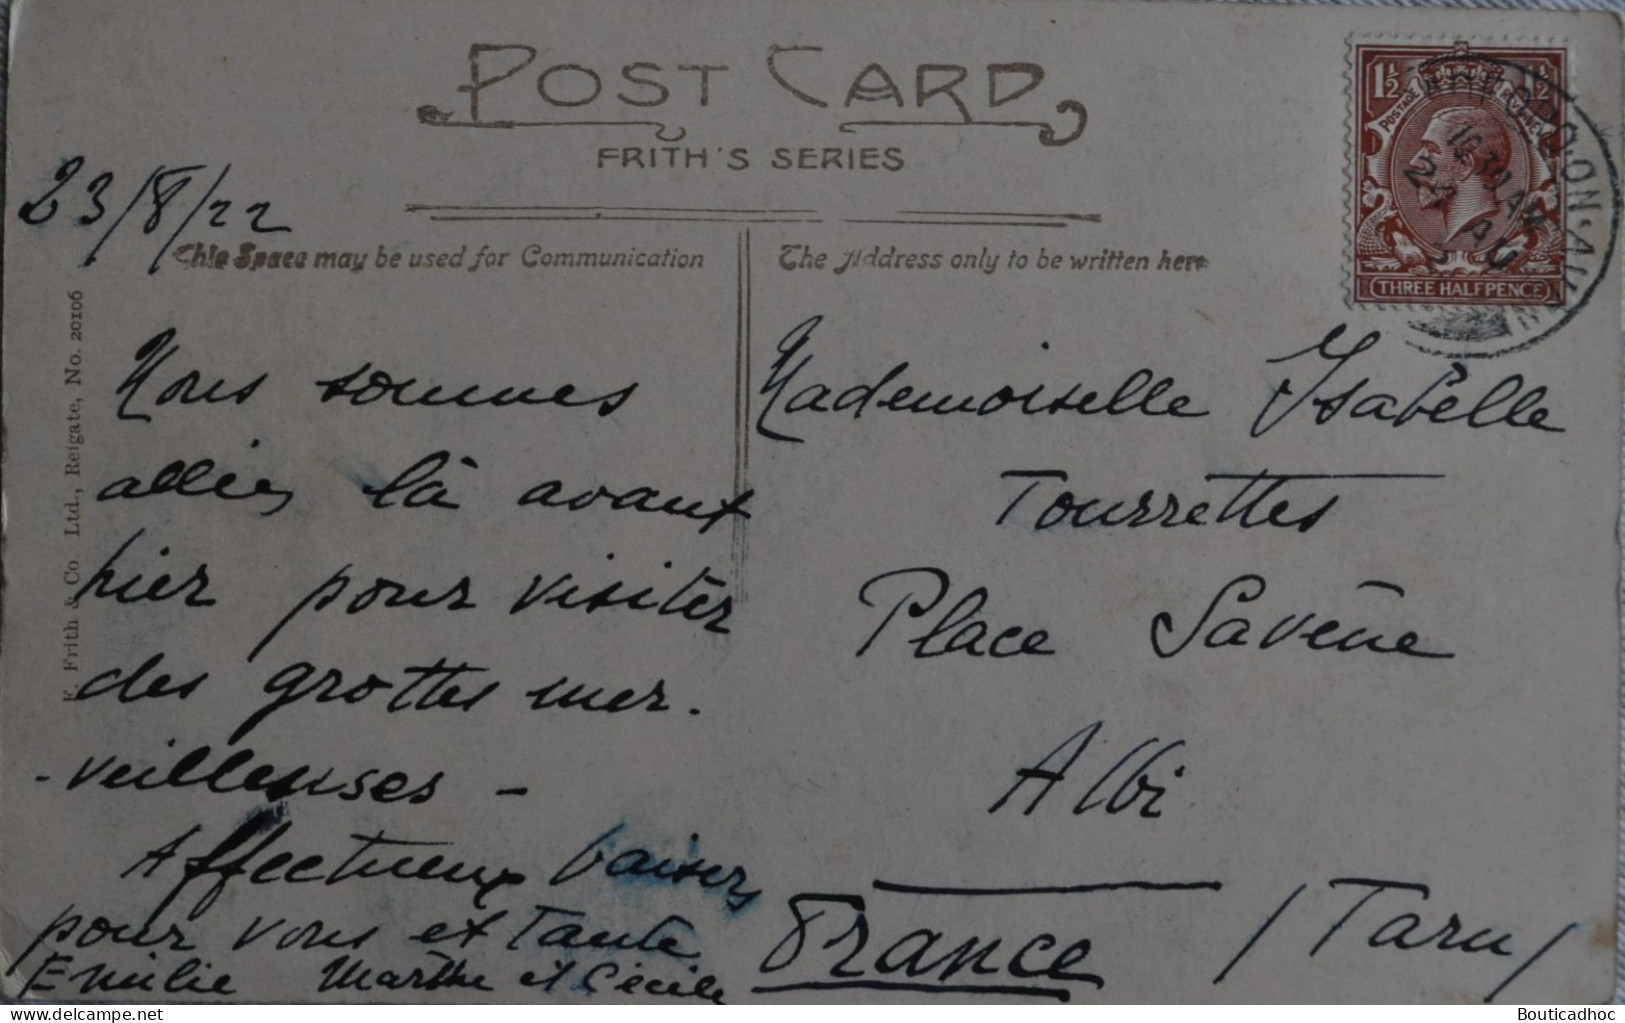 POST CARD
FRITH'S SERIES
23/8/22
This Space may be used for Communication
The Address only to be written here
1½ 1½
POSTAGE REVENUE
THREE HALFPENCE
10 30 AM
AU
F. Frith & Co. Ltd., Reigate, No. 20106
Nous sommes
allées là avant
hier pour visiter
des grottes mer.
-veilleuses -
Affectueux baisers
pour vous et Tante
Emilie Marthe et Cécile
Mademoiselle Isabelle
Tourrettes
Place Savène
Albi
France (Tarn)
Bouticadhoc